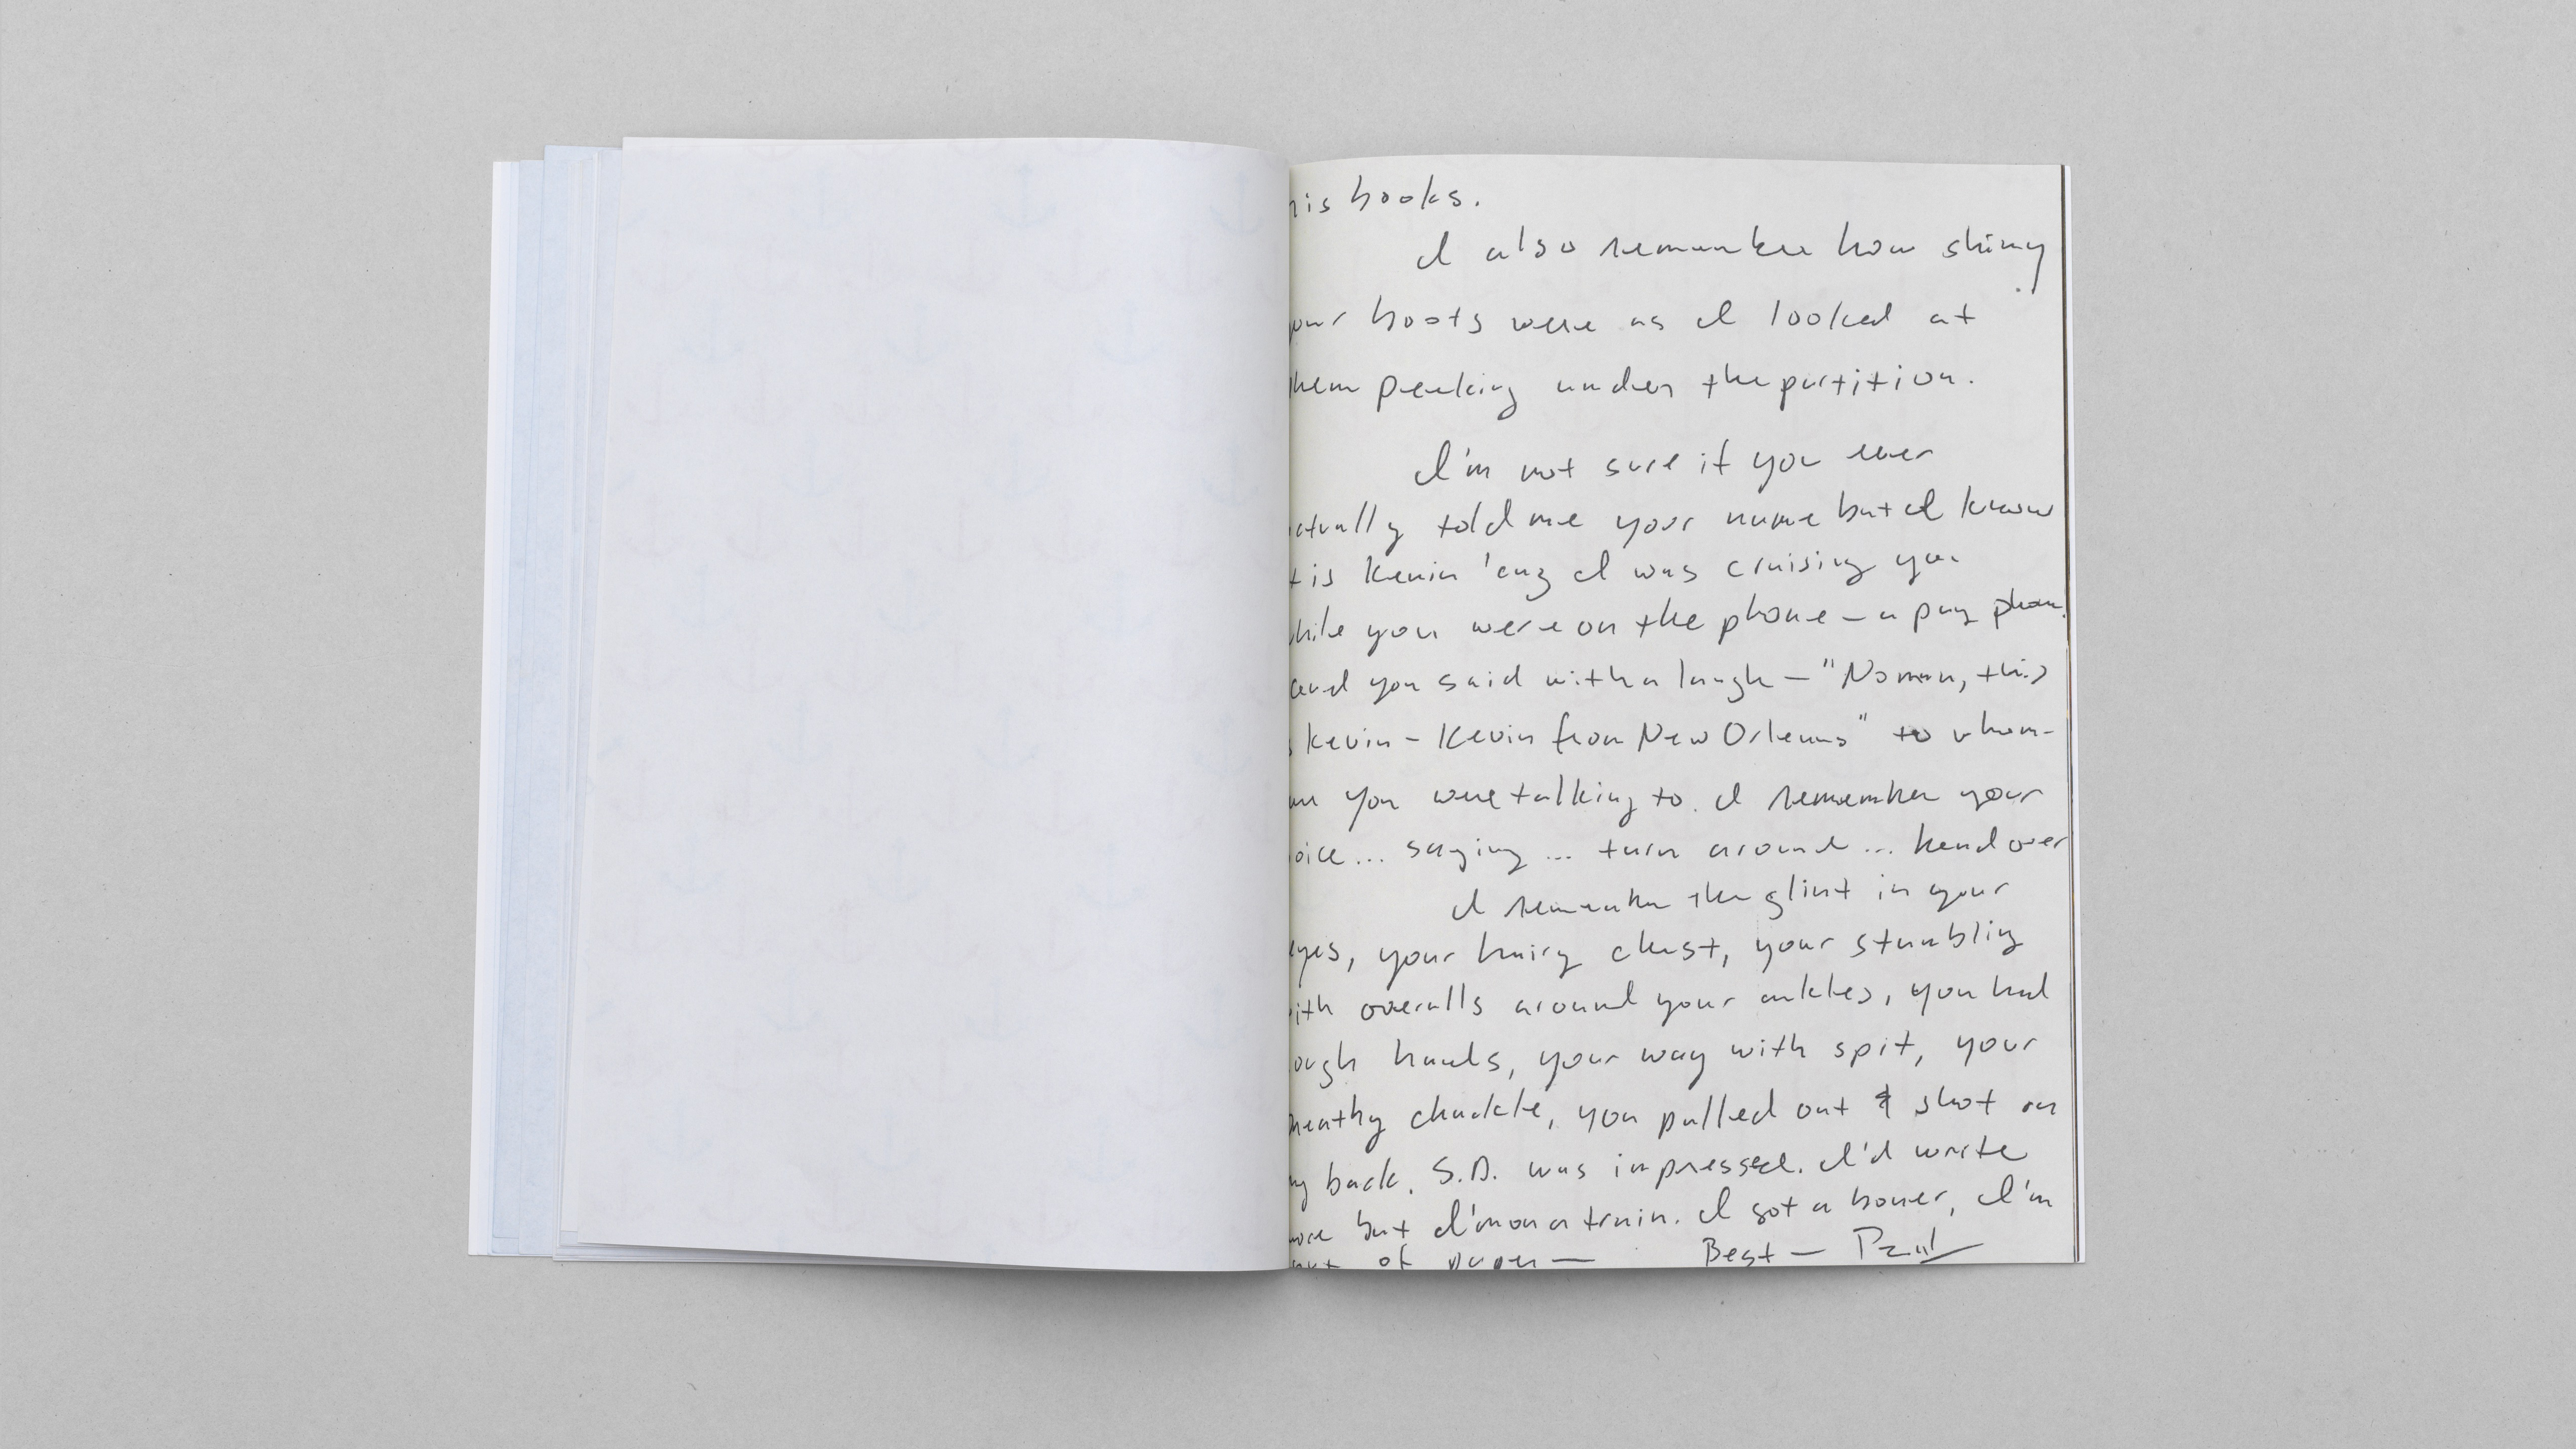 his books.
I also remember how shiny
your boots were as I looked at
them peeking under the partition.
I'm not sure if you ever
actually told me your name but I know
it is Kevin 'cuz I was cruising you
while you were on the phone – a pay phone
and you said with a laugh – "No man, this
is Kevin – Kevin from New Orleans" to whom-
ever you were talking to. I remember your
voice... saying... turn around... bend over
I remember the glint in your
eyes, your hairy chest, your stumbling
with overalls around your ankles, you had
rough hands, your way with spit, your
breathy chuckle, you pulled out & shot on
my back. S.D. was impressed. I'd write
more but I'm on a train. I got a boner, I'm
out of paper — Best — Paul